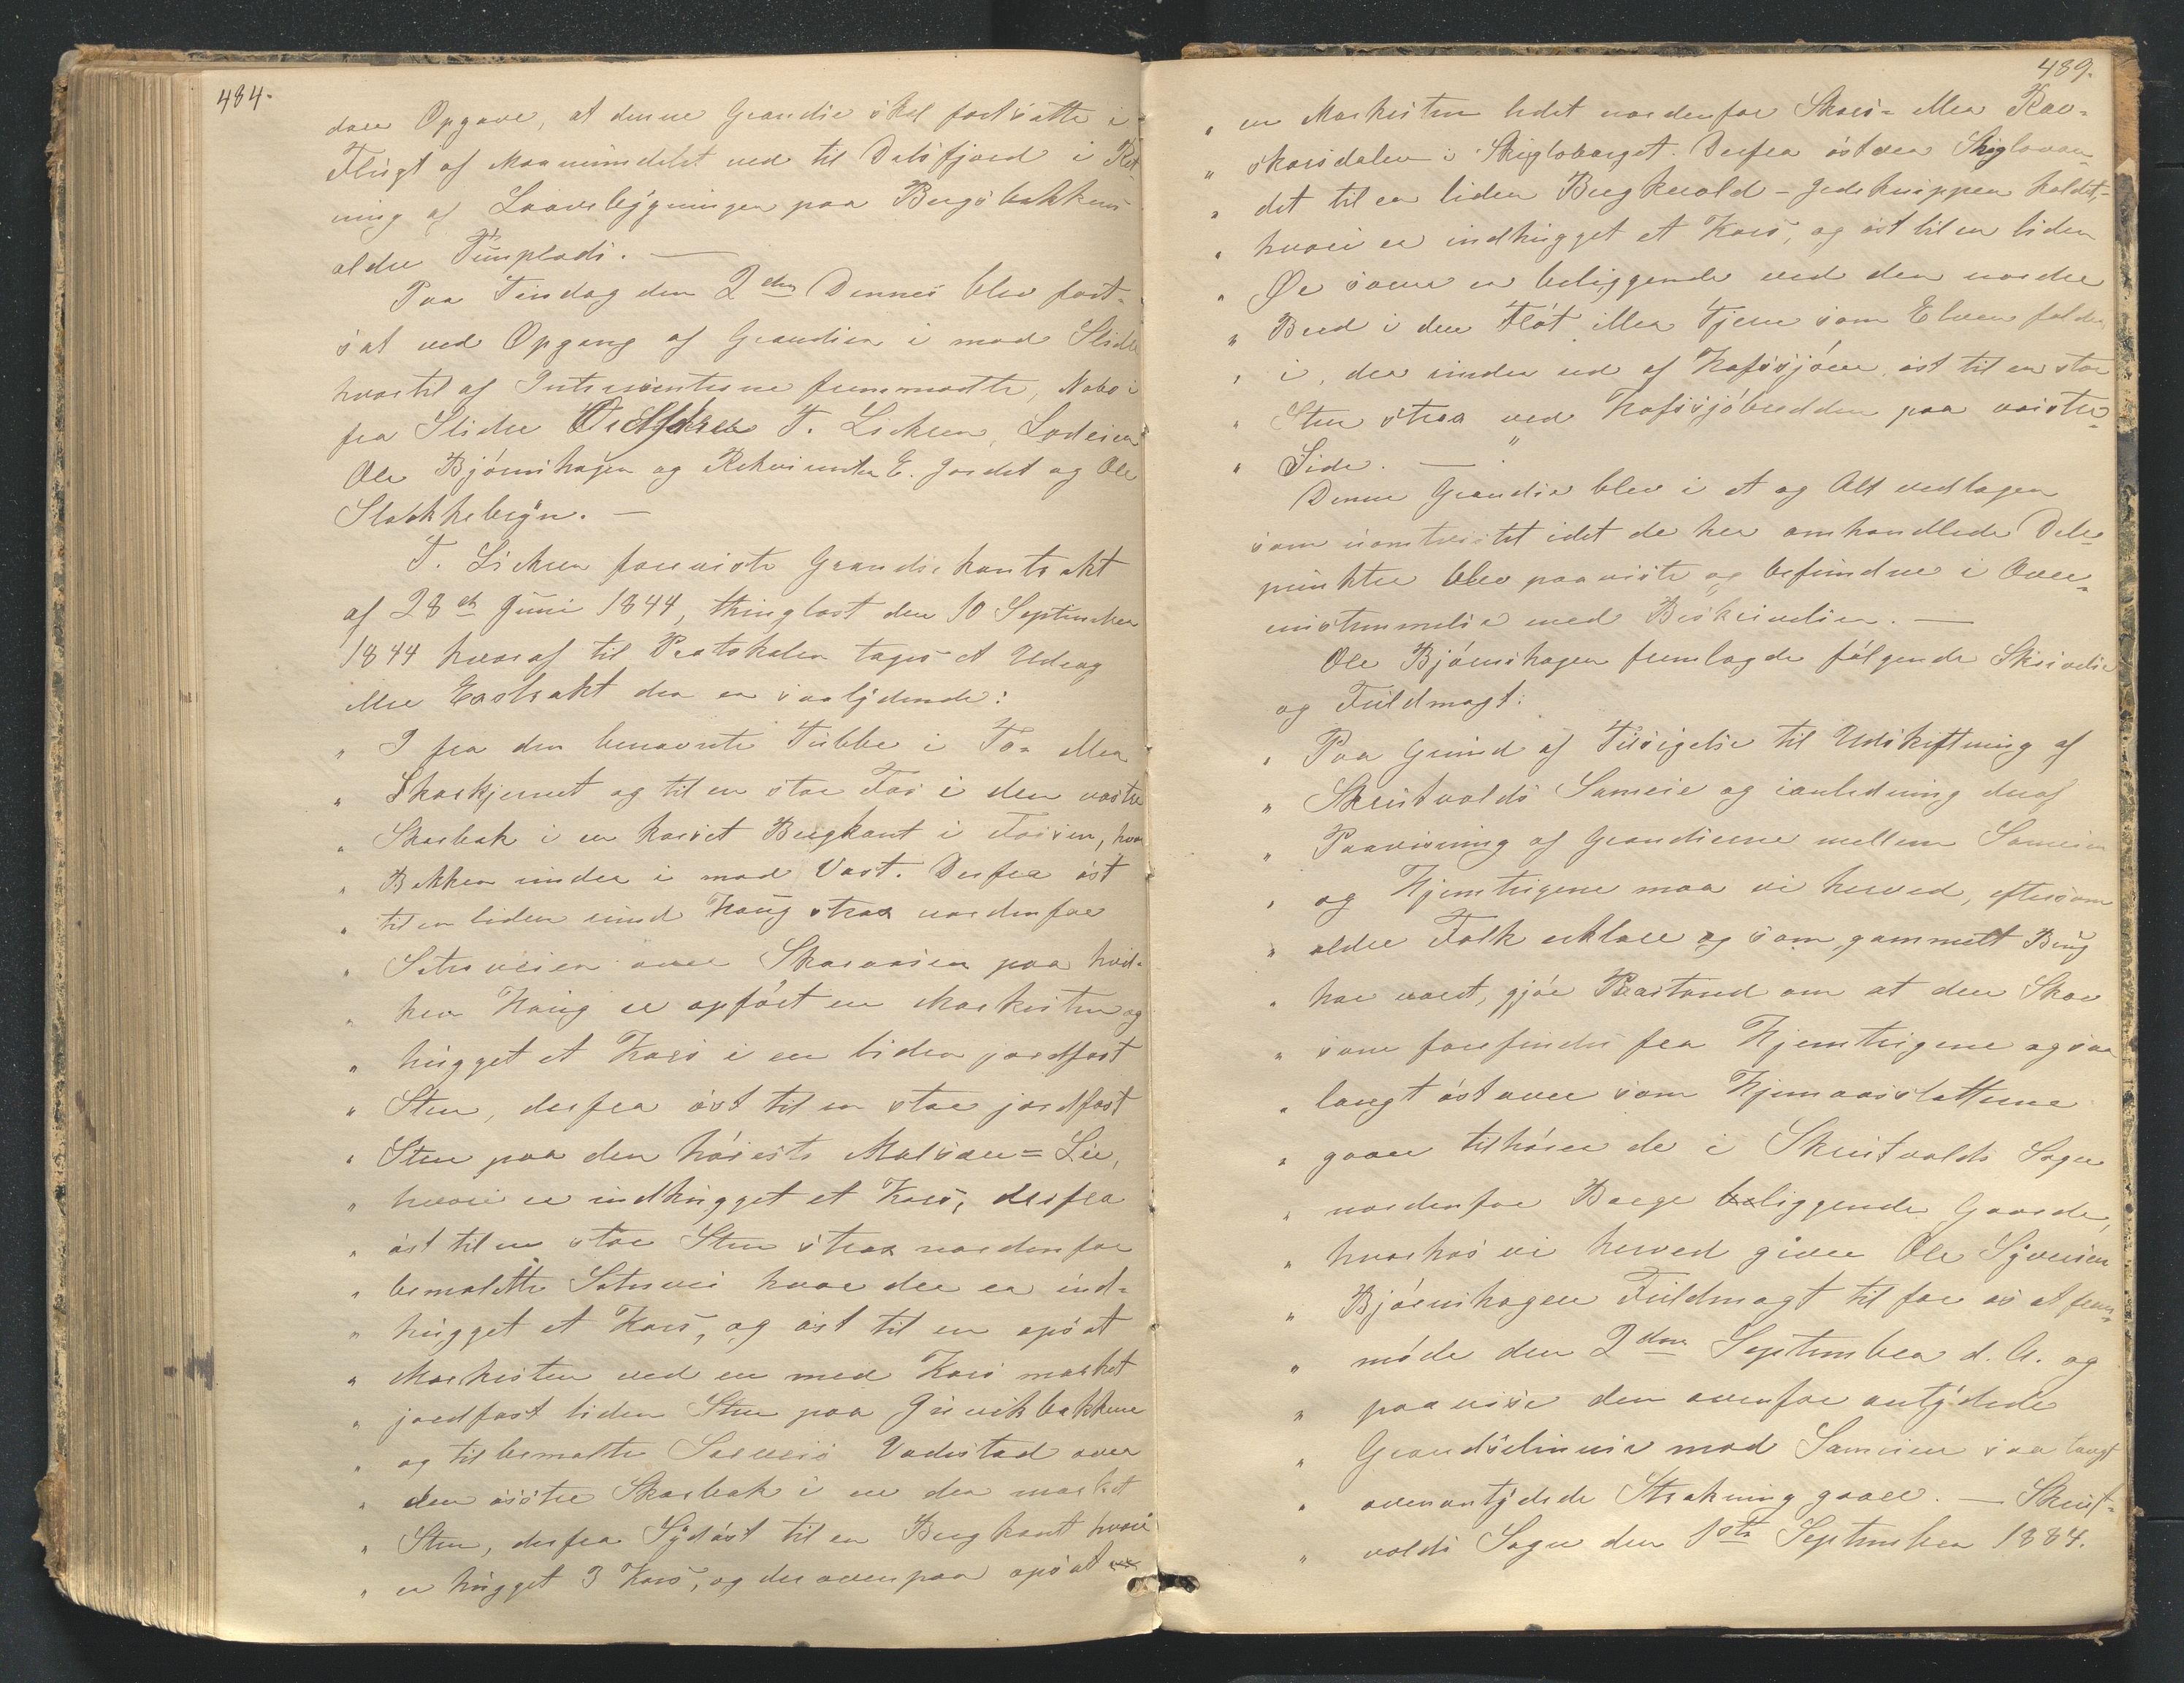 484.
dere Opgave, at denne Grændse skal fortsætte i
Flugt af Maanumdelet ned til Dalsfjord i Ret-
ning af Laavebygningen paa Bergsbakkens
ældre Tunplads. —
Paa Tirsdag den 2den Dennes blev fort-
sat ved Opgang af Grændsen i mod Slidre
hvortil af Interessenterne fremmødte, Nabo i
fra Slidre T. Licken, Lodeier
Ole Bjørnshagen og Rekvirenter E. Jordet og Ole
Stakkebryn. —
T. Licken foreviste Grændsekontrakt
af 28de Juni 1844, thinglæst den 10 September
1844 hvoraf til Protokolen toges et Udrag
eller Extrakt der er saalydende:
" I fra den benævnte Tubbe i To- eller
" Skarkjernet og til en stor Fos i den vestre
" Skarbæk i en korset Bergkant i Fossen, hvor
" Bækken rinder i mod Vest. Derfra øst
" til en liden rund Haug strax nordenfor
" Sæterveien over Skaraasen paa hvil-
" ken Haug er opført en Markesten og
" hugget et Kors i en liden jordfast
" Sten, derfra øst til en stor jordfast
" Sten paa den høieste Mulsæu= Lie,
" hvori er indhugget et Kors, derfra
" øst til en stor Sten strax nordenfor
" bemeldte Sætervei hvor der er ind-
" hugget et Kors, og øst til en opsat
" Markesten ved en med Kors mærket
" jordfast liden Sten paa Grevikbakkene
" og til bemeldte Sætveis Vadested over
" den østre Skarbæk i en der mærket
" Sten, derfra Sydøst til en Bergkant hvori
" er hugget 3 Kors, og der ovenpaa opsat
489.
" en Markesten lidet nordenfor Skars- eller Rav-
" skarsdalen i Skiglobarget. Derfra østover Skiglovan-
" det til en liden Bergknold – Gedeknippen kaldt,-
" hvori er indhugget et Kors, og øst til en liden
" Øe som er beliggende ved den nordre
" Bred i den Fløt eller Tjern som Elven falder
" i, der rinder ud af Hafssjøen, øst til en stor
" Sten strax ved Hafssjøbredden paa vestre
" Side. —
Denne Grændse blev i et og Alt vedtagen
som uomtvistet idet de her omhandlede Dele-
punkter blev paaviste og befundne i Over-
enstemmelse med Beskrivelsen. —
Ole Bjørnshagen fremlagde følgende Skrivelse
og Fuldmagt:
" Paa Grund af Tilsigelse til Udskiftning af
" Skrutvolds Sameie og ianledning deraf
" Paavisning af Grændserne mellem Sameien
" og Hjemtrigene maa vi herved, eftersom
" ældre Folk erklærer og som gammelt Brug
" har været, gjøre Paastand om at den Skov
" som forefindes fra Hjemtrigene og saa
" langt østover som Hjemaasslaatterne
" gaaer tilhører de i Skrutvolds Sogn
" nordenfor Berge beliggende Gaarde,
" hvorhos vi herved giver Ole Syversen
" Bjørnshagen Fuldmagt til for os at frem-
" møde den 2den September d. A. og
" paavise den ovenfor antydede
" Grændselinie mod Sameien saa langt
" ovenantydede Strækning gaaer. — Skrut-
" volds Sogn den 1ste September 1884.